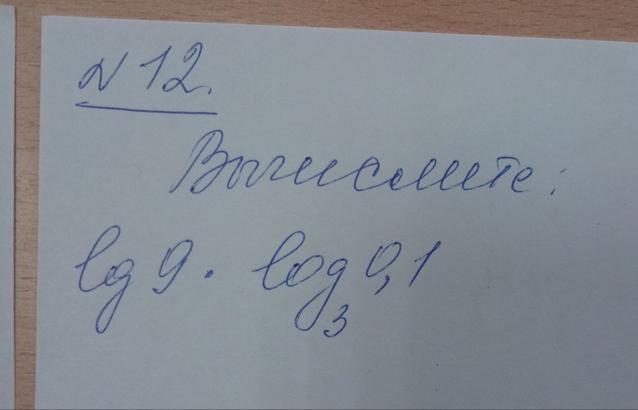 N 12.
Вычислите:
lg 9 · log₃ 0,1